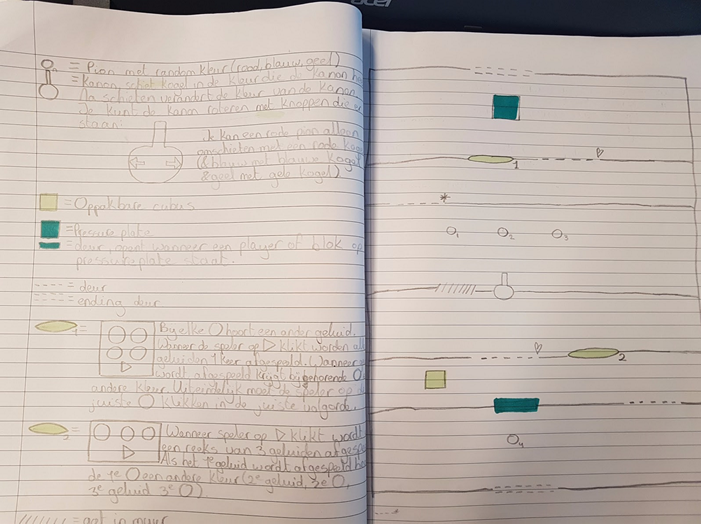 acer
= Pion met random kleur (rood, blauw, geel)
= Kanon, schiet kogel in de kleur die de kanon
Na schieten verandert de kleur van de kanon.
Je kunt de kanon roteren met knoppen die er
staan.
Je kan een rode pion alleen
omschieten met een rode
(& blauw met blauwe kogel
& geel met gele kogel)
= Oppakbare cubus
= Pressure plate
= deur, opent wanneer een player of blok op
pressureplate staat.
= deur
= ending deur
1 = Bij elke O hoort een ander geluid.
Wanneer de speler op ▷ klikt worden
geluiden 1 keer afgespeeld. (Wanneer
wordt afgespeeld krijgt bijhorende O
andere kleur. Uiteindelijk moet de speler op
juiste O klikken in de juiste volgorde.
2 = Wanneer speler op ▷ klikt wordt
een reeks van 3 geluiden
Als het 1e geluid wordt afgespeeld
de 1e O een andere kleur (2e geluid, 2e O,
3e geluid 3e O)
= gat in muur
1
*
1 2 3
2
4